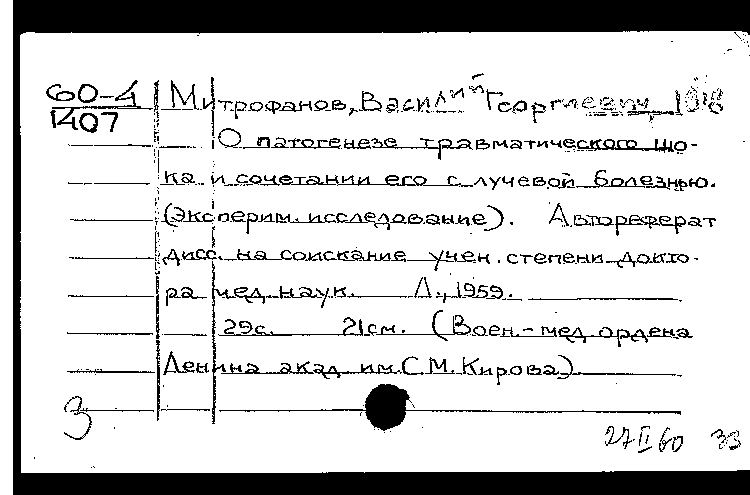 60-4
1407
Митрофанов, Василий Георгиевич, 1918
О патогенезе травматического шо-
ка и сочетании его с лучевой болезнью.
(Эксперим. исследование). Автореферат
дисс. на соискание учен. степени докто-
ра мед. наук. Л., 1959.
29с. 21см. (Воен.-мед. ордена
Ленина акад. им. С.М. Кирова).
3
27 II 60 33